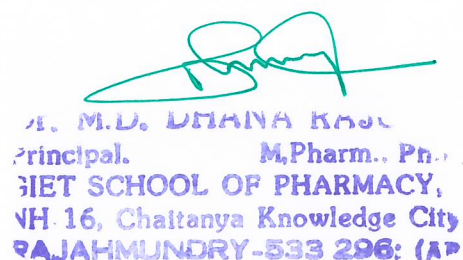 Dr. M.D. DHANA RAJU
Principal. M,Pharm., Ph.
GIET SCHOOL OF PHARMACY,
NH-16, Chaitanya Knowledge City
RAJAHMUNDRY-533 296: (AP